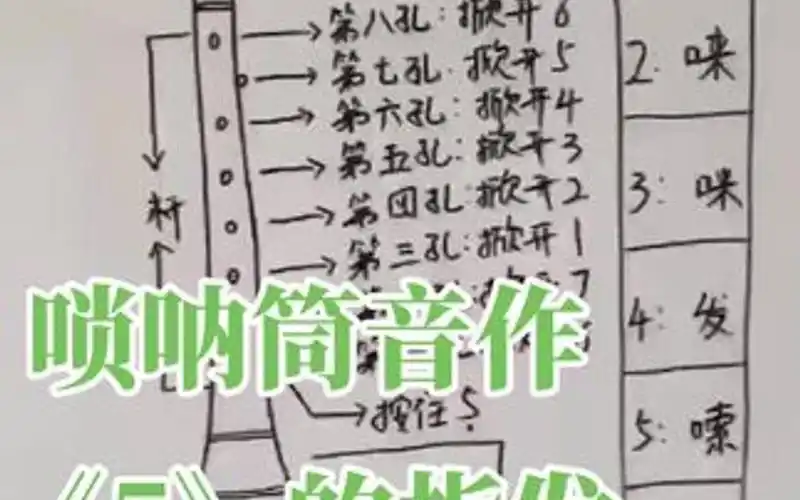 第八孔：掀开6
第七孔：掀开5
第六孔：掀开4
第五孔：掀开3
第四孔：掀开2
第三孔：掀开1
7
按住5
杆
2：唻
3：咪
4：发
5：嗦
唢呐筒音作
《5》的指发